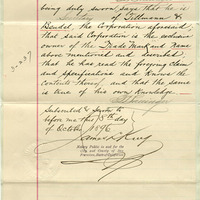 being duly sworn says that he is
of Tillmann &
Bendel, the Corporation aforesaid,
that said Corporation is the exclusive
owner of the Trade Mark and Name
above mentioned and described
that he has read the foregoing Claim
and specifications and knows the
contents thereof, and that the same
is true of his own knowledge.
Subscribed & Sworn to
before me this 5th day
of October 1896
James L. King
Notary Public in and for the
City and County of San
Francisco, State of California